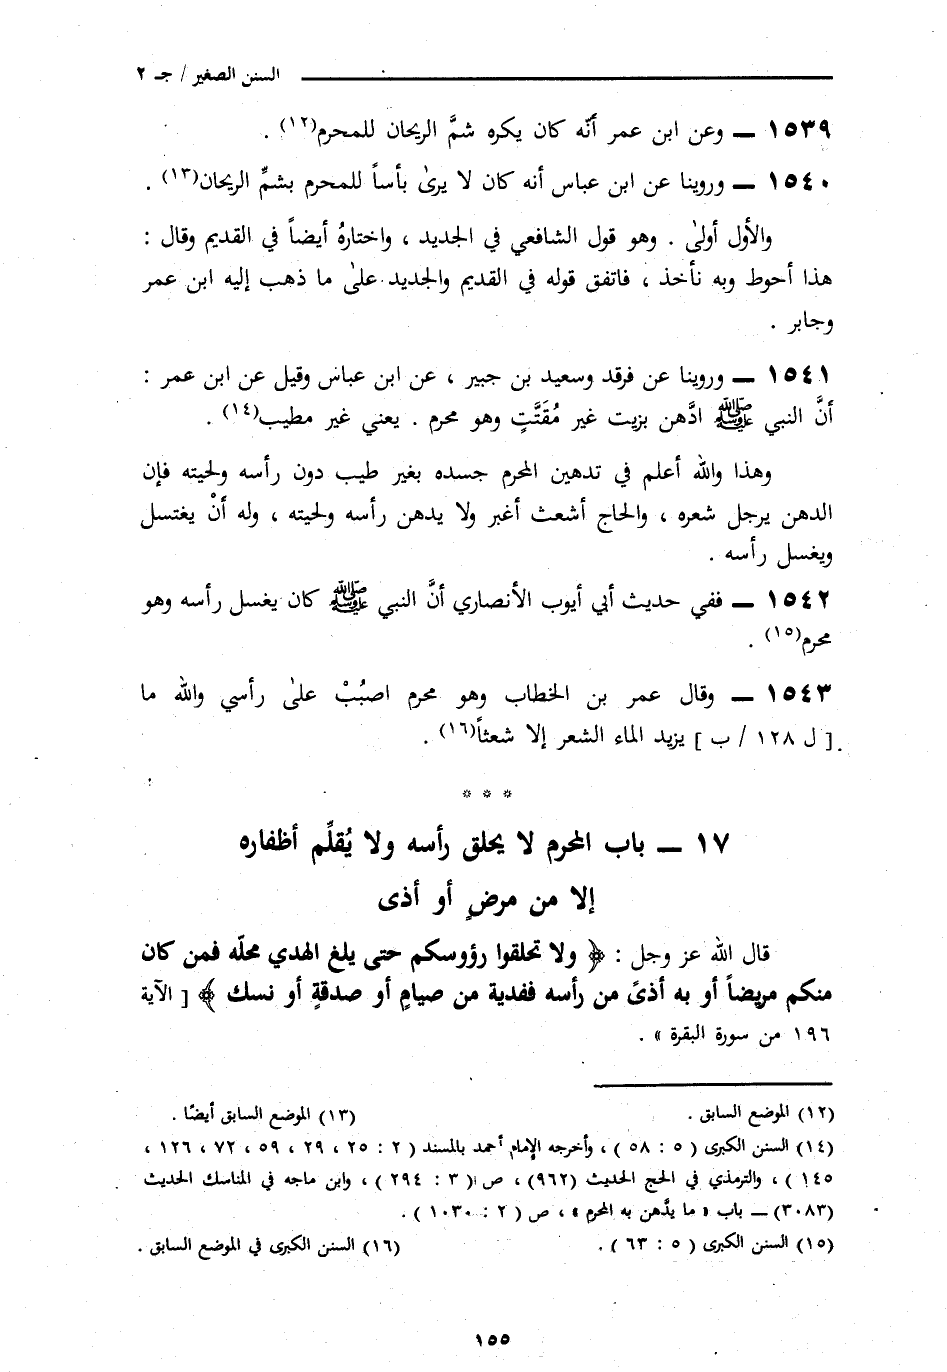 السنن الصغير / جـ ٢
١٥٣٩ ــ وعن ابن عمر أنّه كان يكره شمَّ الريحان للمحرم(١٢) .
١٥٤٠ ــ وروينا عن ابن عباس أنه كان لا يرىٰ بأساً للمحرم بشمِّ الريحان(١٣) .
والأول أولىٰ . وهو قول الشافعي في الجديد ، واختارهُ أيضاً في القديم وقال :
هذا أحوط وبه نأخذ ، فاتفق قوله في القديم والجديد علىٰ ما ذهب إليه ابن عمر
وجابر .
١٥٤١ ــ وروينا عن فرقد وسعيد بن جبير ، عن ابن عباس وقيل عن ابن عمر :
أنَّ النبي ﷺ ادَّهن بزيت غير مُقَتَّتٍ وهو محرم . يعني غير مطيب(١٤) .
وهذا والله أعلم في تدهين المحرم جسده بغير طيب دون رأسه ولحيته فإن
الدهن يرجل شعره ، والحاج أشعث أغبر ولا يدهن رأسه ولحيته ، وله أنْ يغتسل
ويغسل رأسه .
١٥٤٢ ــ ففي حديث أبي أيوب الأنصاري أنَّ النبي ﷺ كان يغسل رأسه وهو
محرم(١٥) .
١٥٤٣ ــ وقال عمر بن الخطاب وهو محرم اصبُبْ علىٰ رأسي والله ما
[ ل ١٢٨ / ب ] يزيد الماء الشعر إلا شعثاً(١٦) .
* * *
١٧ ــ باب المحرم لا يحلق رأسه ولا يُقلِّم أظفاره
إلا من مرضٍ أو أذى
قال الله عز وجل : ﴿ ولا تحلقوا رؤوسكم حتى يلغ الهدي محلّه فمن كان
منكم مريضاً أو به أذىً من رأسه ففدية من صيامٍ أو صدقةٍ أو نسك ﴾ [ الآية
١٩٦ من سورة البقرة » .
(١٢) الموضع السابق . (١٣) الموضع السابق أيضًا .
(١٤) السنن الكبرى ( ٥ : ٥٨ ) ، وأخرجه الإمام أحمد بالمسند ( ٢ : ٢٥ ، ٢٩ ، ٥٩ ، ٧٢ ، ١٢٦ ،
١٤٥ ) ، والترمذي في الحج الحديث (٩٦٢) ، ص ( ٣ : ٢٩٤ ) ، وابن ماجه في المناسك الحديث
(٣٠٨٣) ــ باب « ما يدَّهن به المحرم » ، ص ( ٢ : ١٠٣٠ ) .
(١٥) السنن الكبرى ( ٥ : ٦٣ ) . (١٦) السنن الكبرى في الموضع السابق .
١٥٥